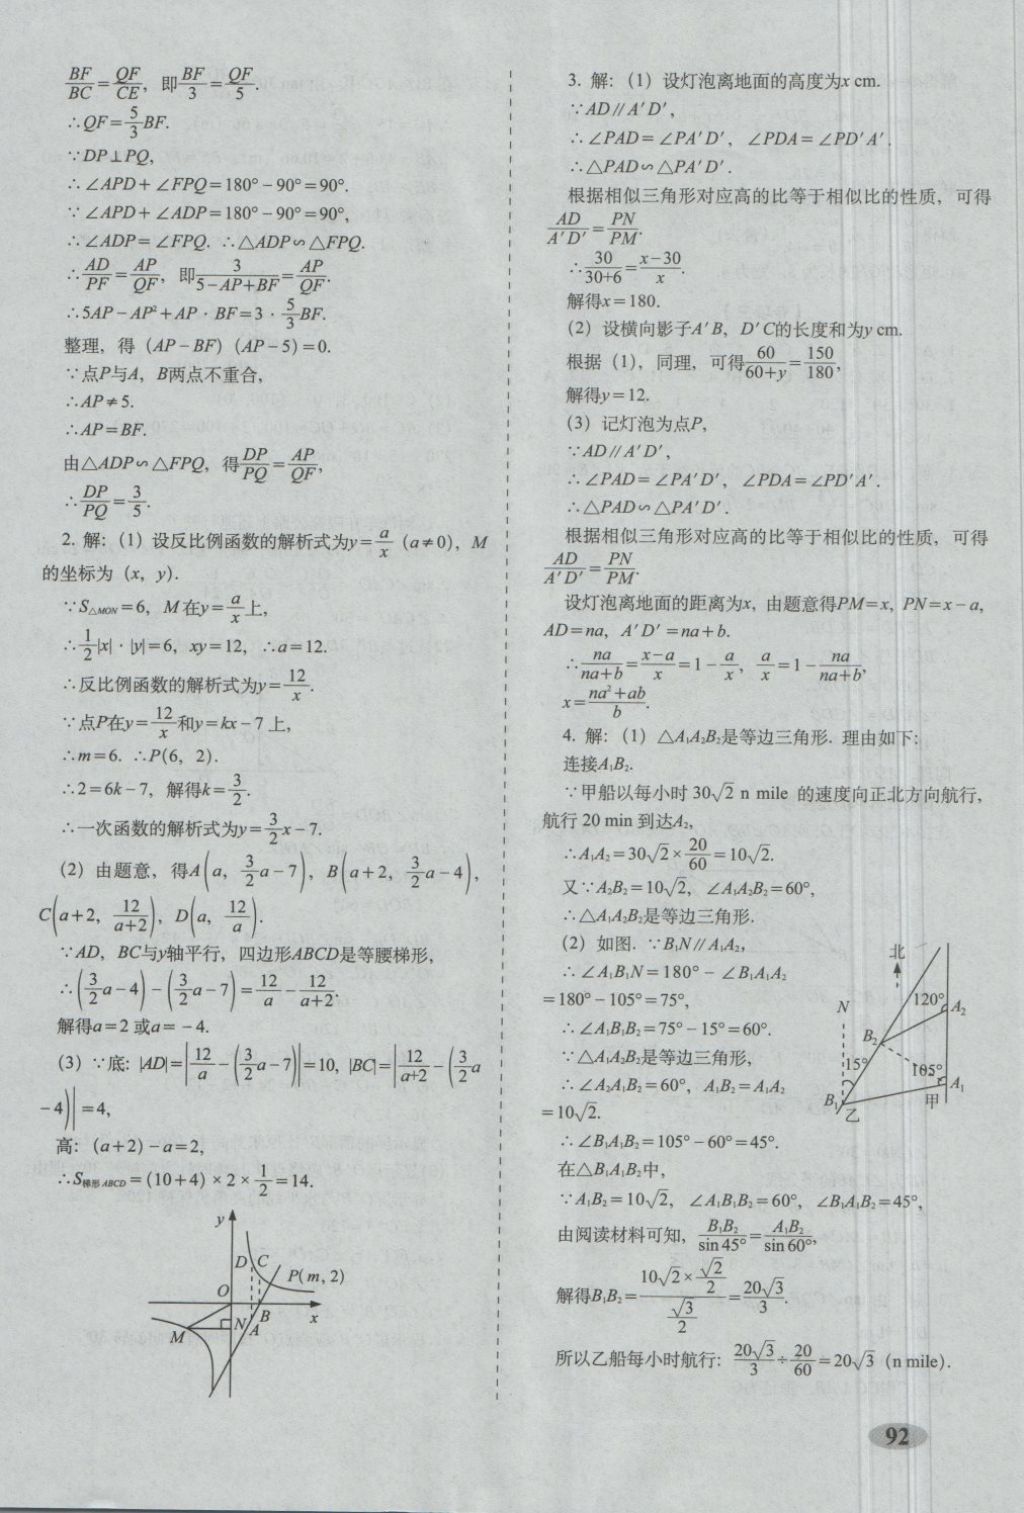 BF/BC=QF/CE，即BF/3=QF/5.
∴QF=5/3BF.
∵DP⊥PQ,
∴∠APD+∠FPQ=180°−90°=90°.
∵∠APD+∠ADP=180°−90°=90°,
∴∠ADP=∠FPQ. ∴△ADP∽△FPQ.
∴AD/PF=AP/QF，即3/(5−AP+BF)=AP/QF.
∴5AP−AP²+AP·BF=3·5/3BF.
整理，得（AP−BF）（AP−5）=0.
∵点P与A，B两点不重合，
∴AP≠5.
∴AP=BF.
由△ADP∽△FPQ，得DP/PQ=AP/QF,
∴DP/PQ=3/5.
2. 解：（1）设反比例函数的解析式为y=a/x（a≠0），M
的坐标为（x，y）.
∵S△MON=6，M在y=a/x上，
∴1/2|x|·|y|=6，xy=12，∴a=12.
∴反比例函数的解析式为y=12/x.
∵点P在y=12/x和y=kx−7上，
∴m=6. ∴P(6，2).
∴2=6k−7，解得k=3/2.
∴一次函数的解析式为y=3/2x−7.
（2）由题意，得A(a，3/2a−7)，B(a+2，3/2a−4)，
C(a+2，12/(a+2))，D(a，12/a).
∵AD，BC与y轴平行，四边形ABCD是等腰梯形，
∴(3/2a−4)−(3/2a−7)=12/a−12/(a+2).
解得a=2或a=−4.
（3）∵底：|AD|=|12/a−(3/2a−7)|=10，|BC|=|12/(a+2)−(3/2a
−4)|=4，
高：（a+2）−a=2，
∴S梯形ABCD=（10+4）×2×1/2=14.
y
D C
P(m, 2)
O
M N A B x
3. 解：（1）设灯泡离地面的高度为x cm.
∵AD∥A′D′，
∴∠PAD=∠PA′D′，∠PDA=∠PD′A′.
∴△PAD∽△PA′D′.
根据相似三角形对应高的比等于相似比的性质，可得
AD/A′D′=PN/PM.
∴30/(30+6)=(x−30)/x.
解得x=180.
（2）设横向影子A′B，D′C的长度和为y cm.
根据（1），同理，可得60/(60+y)=150/180，
解得y=12.
（3）记灯泡为点P，
∵AD∥A′D′，
∴∠PAD=∠PA′D′，∠PDA=∠PD′A′.
∴△PAD∽△PA′D′.
根据相似三角形对应高的比等于相似比的性质，可得
AD/A′D′=PN/PM.
设灯泡离地面的距离为x，由题意得PM=x，PN=x−a，
AD=na，A′D′=na+b.
∴na/(na+b)=(x−a)/x=1−a/x，a/x=1−na/(na+b)，
x=(na²+ab)/b.
4. 解：（1）△A₁A₂B₂是等边三角形. 理由如下：
连接A₁B₂.
∵甲船以每小时30√2 n mile 的速度向正北方向航行，
航行20 min到达A₂，
∴A₁A₂=30√2×20/60=10√2.
又∵A₂B₂=10√2，∠A₁A₂B₂=60°，
∴△A₁A₂B₂是等边三角形.
（2）如图. ∵B₁N∥A₁A₂，
∴∠A₁B₁N=180°−∠B₁A₁A₂
=180°−105°=75°，
∴∠A₁B₁B₂=75°−15°=60°.
∵△A₁A₂B₂是等边三角形，
∴∠A₂A₁B₂=60°，A₁B₂=A₁A₂
=10√2.
∴∠B₁A₁B₂=105°−60°=45°.
在△B₁A₁B₂中，
∵A₁B₂=10√2，∠A₁B₁B₂=60°，∠B₁A₁B₂=45°，
由阅读材料可知，B₁B₂/sin45°=A₁B₂/sin60°，
解得B₁B₂=(10√2×√2/2)/(√3/2)=20√3/3.
所以乙船每小时航行：20√3/3÷20/60=20√3（n mile）.
北
120° A₂
N
B₂
15°
105°
A₁
B₁ 乙 甲
92